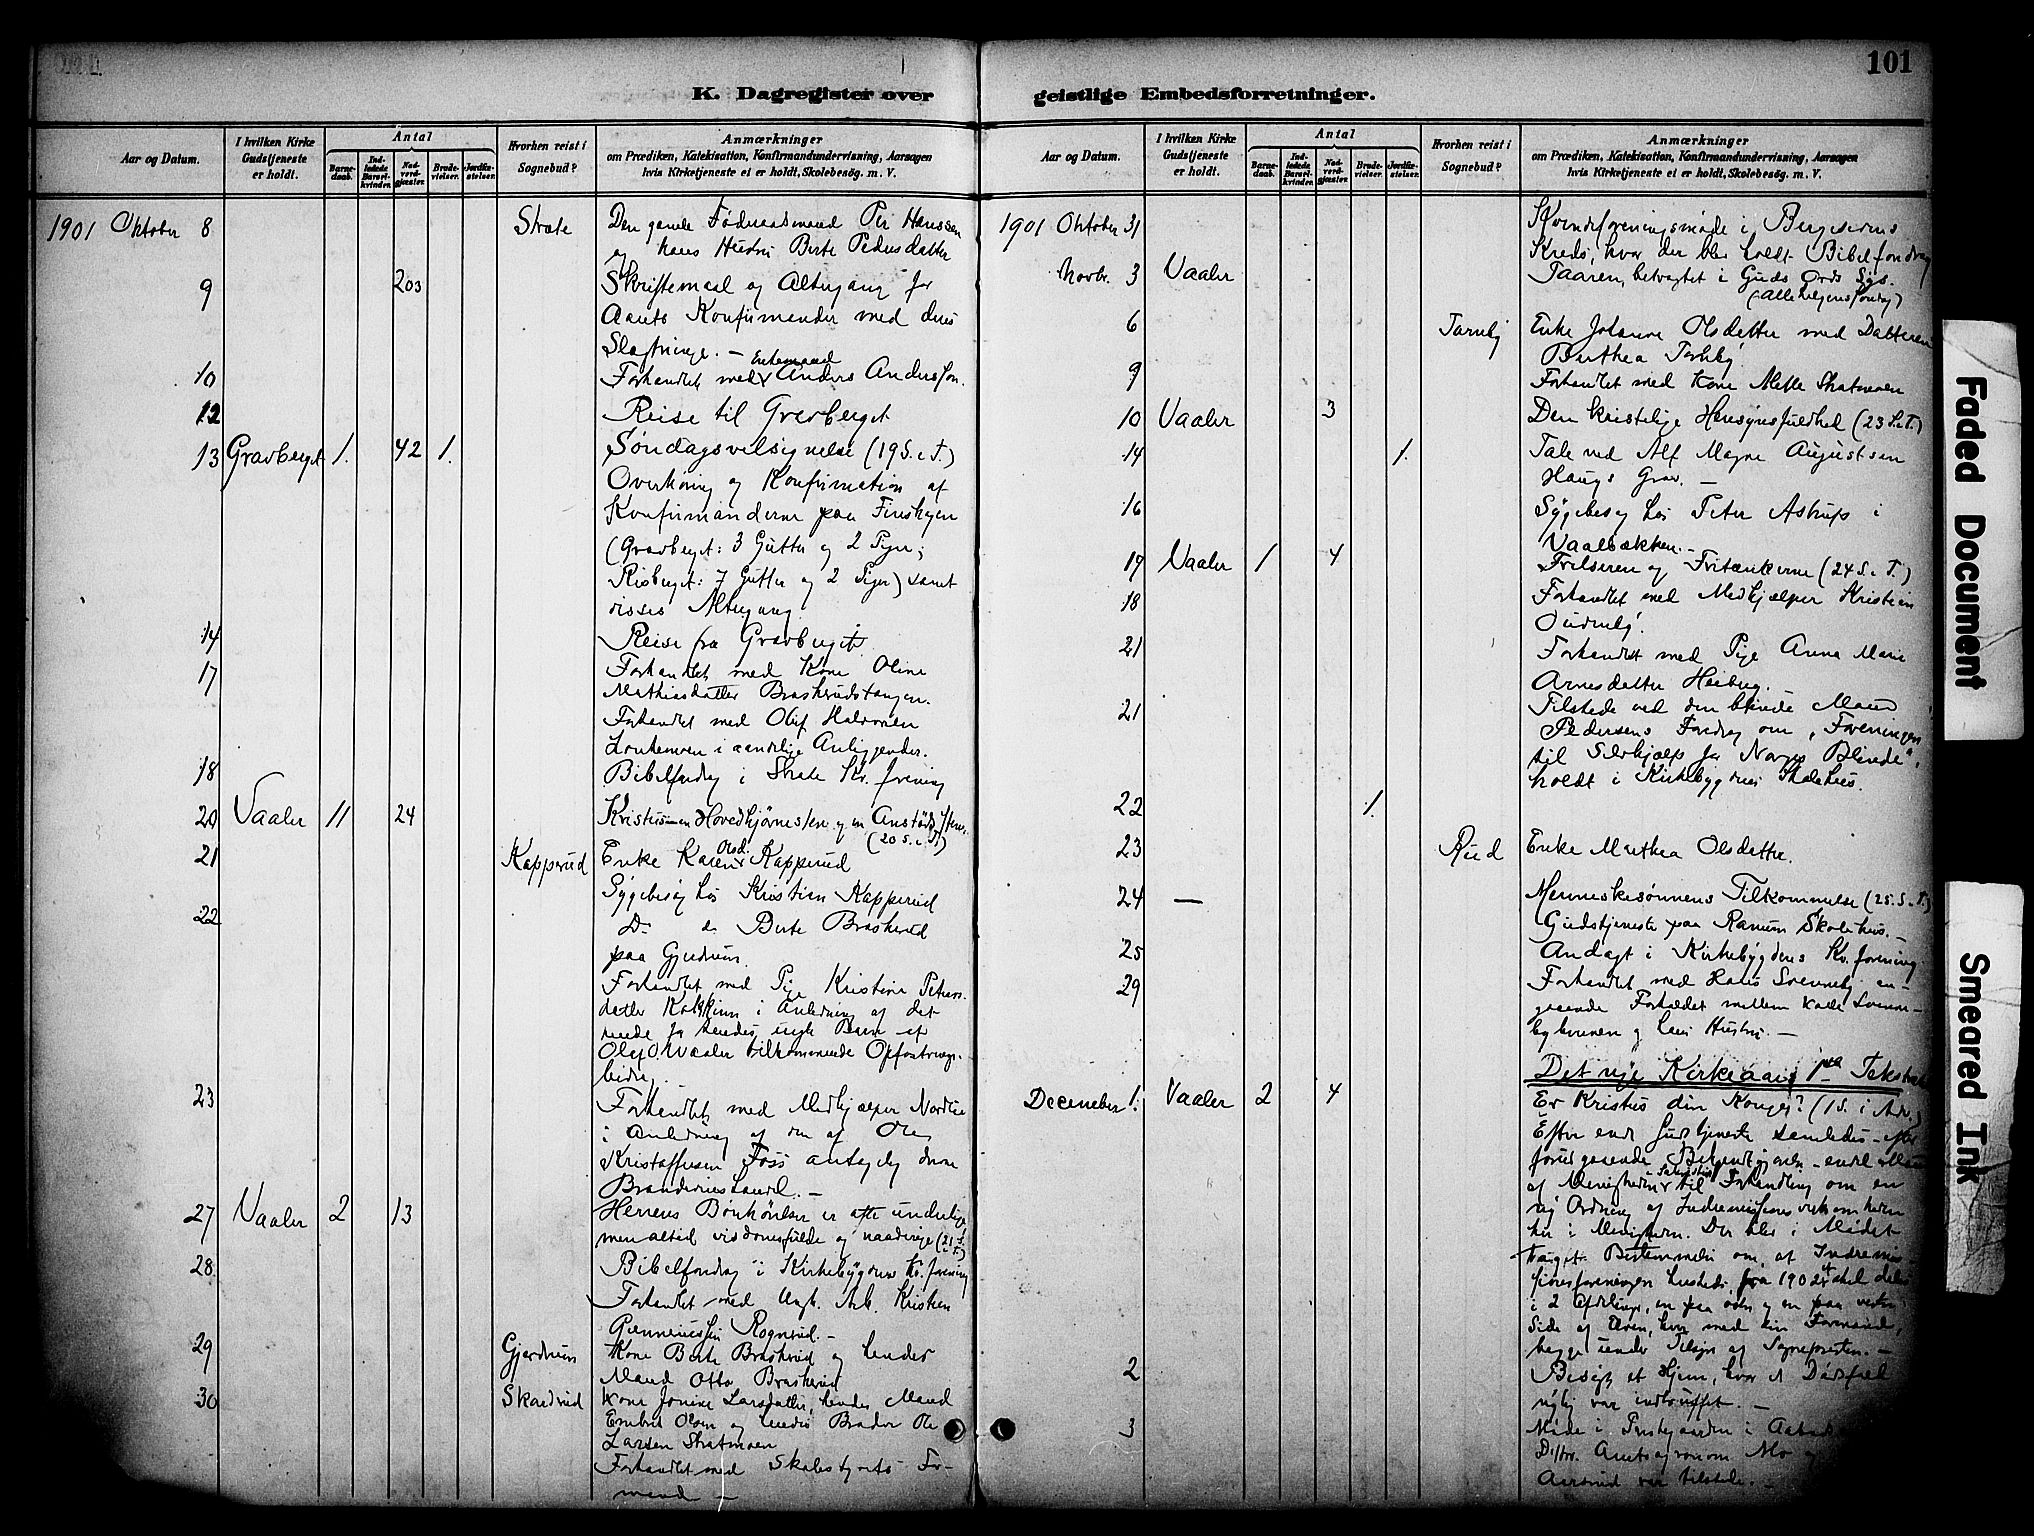 K. Dagregister over
Aar og Datum.
I hvilken Kirke Gudstjeneste er holdt.
Antal
Barnedaab.
Indledede Barselkvinder.
Nadverdgjæster.
Brudevielser.
Jordfæstelser.
Hvorhen reist i Sognebud?
Anmærkninger
om Prædiken, Katekisation, Konfirmandundervisning, Aarsagen
hvis Kirketjeneste ei er holdt, Skolebesøg. m. V.
1901 Oktober 8 Strate Den gamle Føderaadsmand Per Hanssen
og hans Hustru Berte Pedersdatter
9 203 Skriftemaal og Altergang for
Aarets Konfirmander med deres
Slægtninge. —
10 Forhandlet med Enkemand Anders Anderssøn.
12 Reise til Gravberget
13 Gravberget 1. 42 1. Søndagsvelsignelse (19 S. e T.)
Overhøring og Konfirmation af
Konfirmanderne paa Finskogen
(Gravberget: 3 Gutter og 2 Piger;
Risberget: 7 Gutter og 2 Piger) samt
disses Altergang
14 Reise fra Gravberget
17 Forhandlet med Kone Oline
Mathiasdatter Braskerudstangen.
Forhandlet med Oluf Halvorsen
i aandelige Anliggender.
18 Bibelforedrag i Strate Kv. forening
20 Vaaler 11 24 Kristus — en Hovedhjørnesten og en Anstødssten.
(20 S. e. T.)
21 Kapperud Enke Karen Olsd. Kapperud
Sygebesøg hos Kristian Kapperud
22 Do do Berte Braskerud
paa Gjerdrum.
Forhandlet med Pige Kristine Peters-
datter i Anledning af det
hende for hendes uægte Barn af
Olaf O. Vaaler tilkommende Opfostrings-
bidrag.
23 Forhandlet med Medhjælper Nordlie
i Anledning af
Kristoffersen Foss
Brændevinshandel. —
27 Vaaler 2 13 Herrens Bønhørelser er ofte underlige
men altid visdomsfulde og naaderige (21 S. e T.)
28 Bibelforedrag i Kirkebygdens Kv. forening
Forhandlet med Ungk. Arb. Kristian
Rognerud. —
29 Gjerdrum Kone Berte Braskerud og hendes
Mand Otto Braskerud
30 Skarderud Kone Jonine Larsdatter, hendes Mand
Embret Olsen og hendes Broder Ole
Larsen Skatmoen
Forhandlet med Skolestyrets For-
mand —
101
geistlige Embedsforretninger.
Aar og Datum.
I hvilken Kirke Gudstjeneste er holdt.
Antal
Barnedaab.
Indledede Barselkvinder.
Nadverdgjæster.
Brudevielser.
Jordfæstelser.
Hvorhen reist i Sognebud?
Anmærkninger
om Prædiken, Katekisation, Konfirmandundervisning, Aarsagen
hvis Kirketjeneste ei er holdt, Skolebesøg. m. V.
1901 Oktober 31 Kvindeforeningsmøde i
Kreds, hvor der blev holdt Bibelforedrag
Novbr. 3 Vaaler Taaren, betragtet i Guds Ords Lys.
(Allehelgenssøndag)
6 Tørneby Enke Johanne Olsdatter med Datteren
Berthea Tørneby
9 Forhandlet med Kone Mette Skatmoen
10 Vaaler 3 Den kristelige Hensynsfuldhed (23 S.e.T.)
14 1. Tale ved Alf Magne Augustsen
Haugs Grav. —
16 Sygebesøg hos Peter Astrup i
Vaalbækken. —
17 Vaaler 1 4 Frelseren og Fritænkerne (24 S. e. T.)
18 Forhandlet med Medhjælper Kristian
21 Forhandlet med Pige Anna Marie
Arnesdatter Heiberg.
21 Tilstede ved den blinde Mand
Pedersens Foredrag om „Foreningen
til Selvhjælp for Norges Blinde",
holdt i Kirkebygdens Skolehus.
22 1.
23 Rud Enke Marthea Olsdatter.
24 — Menneskesønnens Tilkommelse (25. S. e. T.)
Gudstjeneste paa Ranum Skolehus. —
25 Andagt i Kirkebygdens Kv. forening.
29 Forhandlet med Hans Svenneby an-
gaaende Forholdet mellem Svenne-
og hans Hustru. —
Det nye Kirkeaar
December 1. Vaaler 2 4 Er Kristus din Konge? (1 S. i Adv.)
Efter endt Gudstjeneste samledes — efter
forudgaaende Bekjendtgjørelse — endel
af Menigheden i Sakristiet til Forhandling om en
ny Ordning af Indremissionens virksomheden
her i Menigheden. Der blev i Mødet
taget Bestemmelse om, at Indremis-
sionsforeningen herstedes fra 1902 af skal deles
i 2 Afdelinger, en paa østre og en paa vestre
Side af Elven, hver med sin Formand,
begge under Tilsyn af Sognepresten. —
2 Besøgt et Hjem, hvor et Dødsfald
nylig var indtruffet. —
3 Møde i Prestegaarden i
Distr. Amtsagronom Mo og
Aarsrud var tilstede. —
Faded Document
Smeared Ink